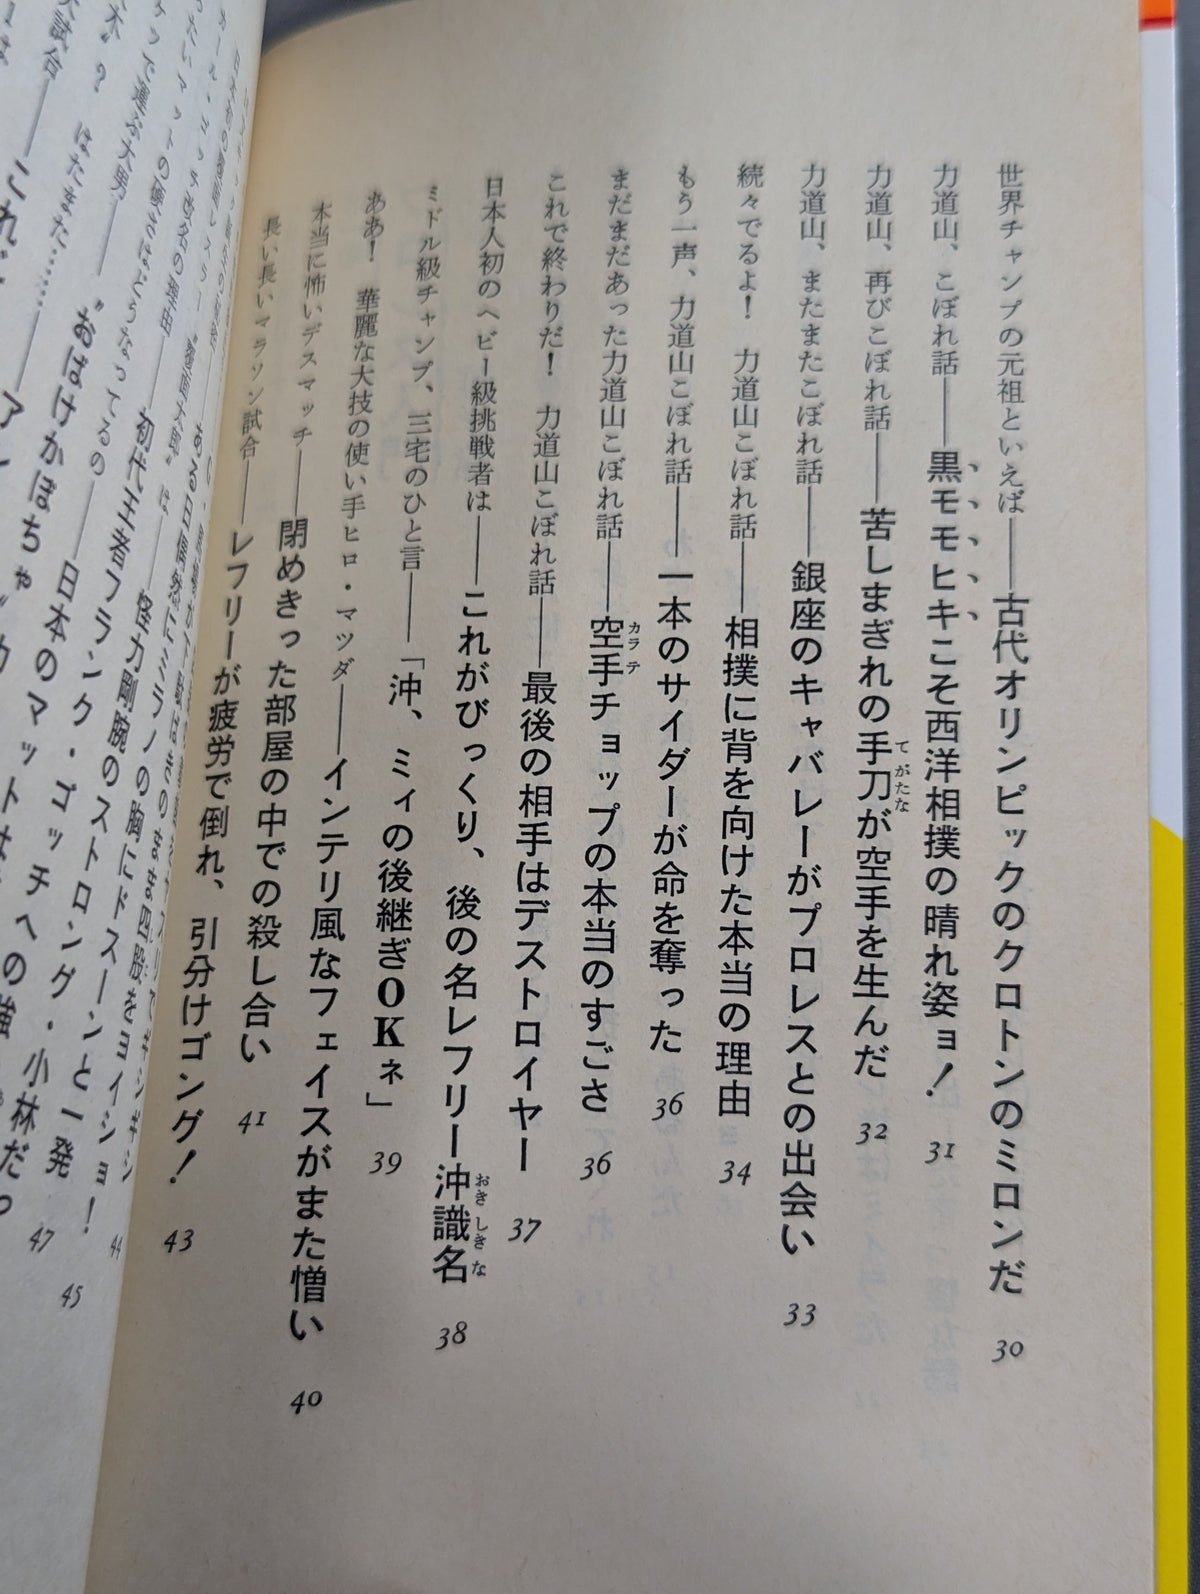 世界チャンプの元祖といえば――古代オリンピックのクロトンのミロンだ 30
力道山、こぼれ話――黒モモヒキこそ西洋相撲の晴れ姿ョ! 31
力道山、再びこぼれ話――苦しまぎれの手刀が空手を生んだ 32
てがたな
力道山、またまたこぼれ話――銀座のキャバレーがプロレスとの出会い 33
続々でるよ! 力道山こぼれ話――相撲に背を向けた本当の理由 34
もう一声、力道山こぼれ話――一本のサイダーが命を奪った 36
まだまだあった力道山こぼれ話――空手チョップの本当のすごさ 36
カラテ
これで終わりだ! 力道山こぼれ話――最後の相手はデストロイヤー 37
日本人初のヘビー級挑戦者は――これがびっくり、後の名レフリー沖識名 38
おきしきな
ミドル級チャンプ、三宅のひと言――「沖、ミィの後継ぎOKネ」 39
ああ! 華麗な大技の使い手ヒロ・マツダ――インテリ風なフェイスがまた憎い 40
本当に怖いデスマッチ――閉めきった部屋の中での殺し合い 41
長い長いマラソン試合――レフリーが疲労で倒れ、引分けゴング! 43
ある日偶然にミラノの胸にドスーンと一発 47
怪力剛腕のストロング・小林だっ
初代王者フランク・ゴッチへの強
日本のマットは
“おばけかぼちゃ”カ
はたまた……
これだ
44
45